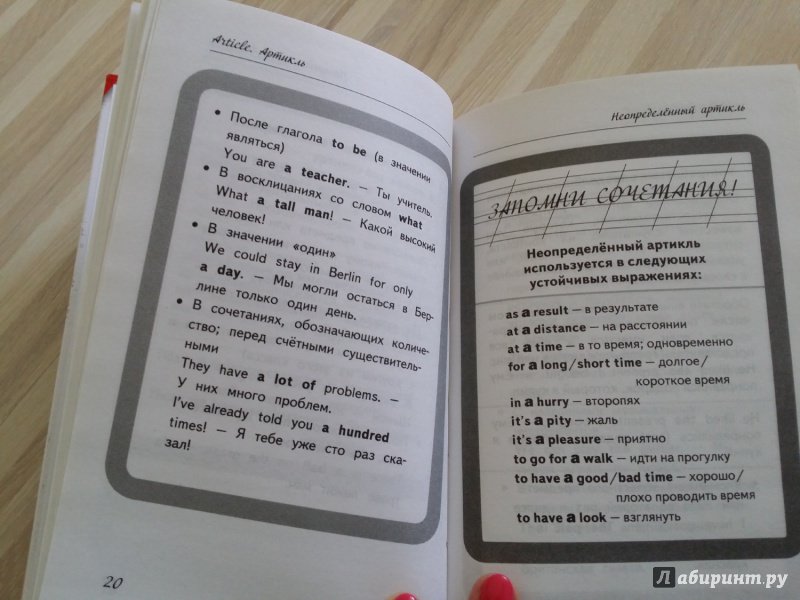 Article. Артикль
• После глагола to be (в значении
являться)
You are a teacher. — Ты учитель.
• В восклицаниях со словом what
What a tall man! — Какой высокий
человек!
• В значении «один»
We could stay in Berlin for only
a day. — Мы могли остаться в Бер-
лине только один день.
• В сочетаниях, обозначающих количе-
ство; перед счётными существитель-
ными
They have a lot of problems. —
У них много проблем.
I've already told you a hundred
times! — Я тебе уже сто раз ска-
зал!
20
Неопределённый артикль
ЗАПОМНИ СОЧЕТАНИЯ!
Неопределённый артикль
используется в следующих
устойчивых выражениях:
as a result — в результате
at a distance — на расстоянии
at a time — в то время; одновременно
for a long/short time — долгое/
короткое время
in a hurry — второпях
it's a pity — жаль
it's a pleasure — приятно
to go for a walk — идти на прогулку
to have a good/bad time — хорошо/
плохо проводить время
to have a look — взглянуть
Лабиринт.ру